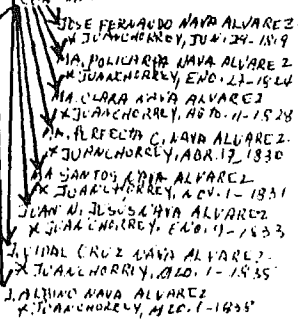 JOSE FERNANDO NAVA ALVAREZ
x JUANCHORREY, JUN. 24-1819
MA. POLICARPA NAVA ALVAREZ
x JUANCHORREY, ENO. 27-1824
MA. CLARA NAVA ALVAREZ
x JUANCHORREY, AGTO. 11-1828
MA. PERFECTA C. NAVA ALVAREZ
x JUANCHORREY, ABR. 19, 1830
MA SANTOS NAVA ALVAREZ
x JUANCHORREY, NOV. 1-1831
JUAN N. JESUS NAVA ALVAREZ
x JUANCHORREY, ENO. 11-1833
J. VIDAL CRUZ NAVA ALVAREZ
x JUANCHORREY, 1-1835
J. ALBINO NAVA ALVAREZ
x JUANCHORREY, 1-1835